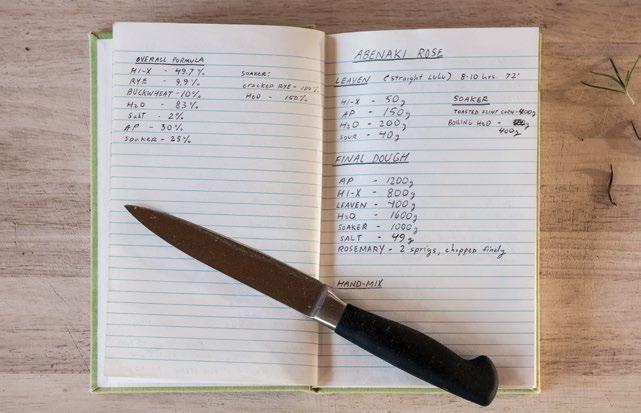 OVERALL FORMULA
HI-X - 49.7%
RYE - 9.9%
BUCKWHEAT - 10%
H2O - 83%
Salt - 2%
AP - 30%
soaker - 25%
SOAKER:
cracked RYE - 100%
H2O - 150%
ABENAKI ROSE
LEAVEN (straight Lulu) 8-10 hrs. 72°
HI-X - 50g
AP - 150g
H2O - 200g
SOUR - 40g
SOAKER
TOASTED FLINT CORN - 400g
BOILING H2O - 400g
FINAL DOUGH
AP - 1200g
HI-X - 800g
LEAVEN - 400g
H2O - 1600g
SOAKER - 1000g
SALT - 49g
ROSEMARY - 2 sprigs, chopped finely
HAND-MIX